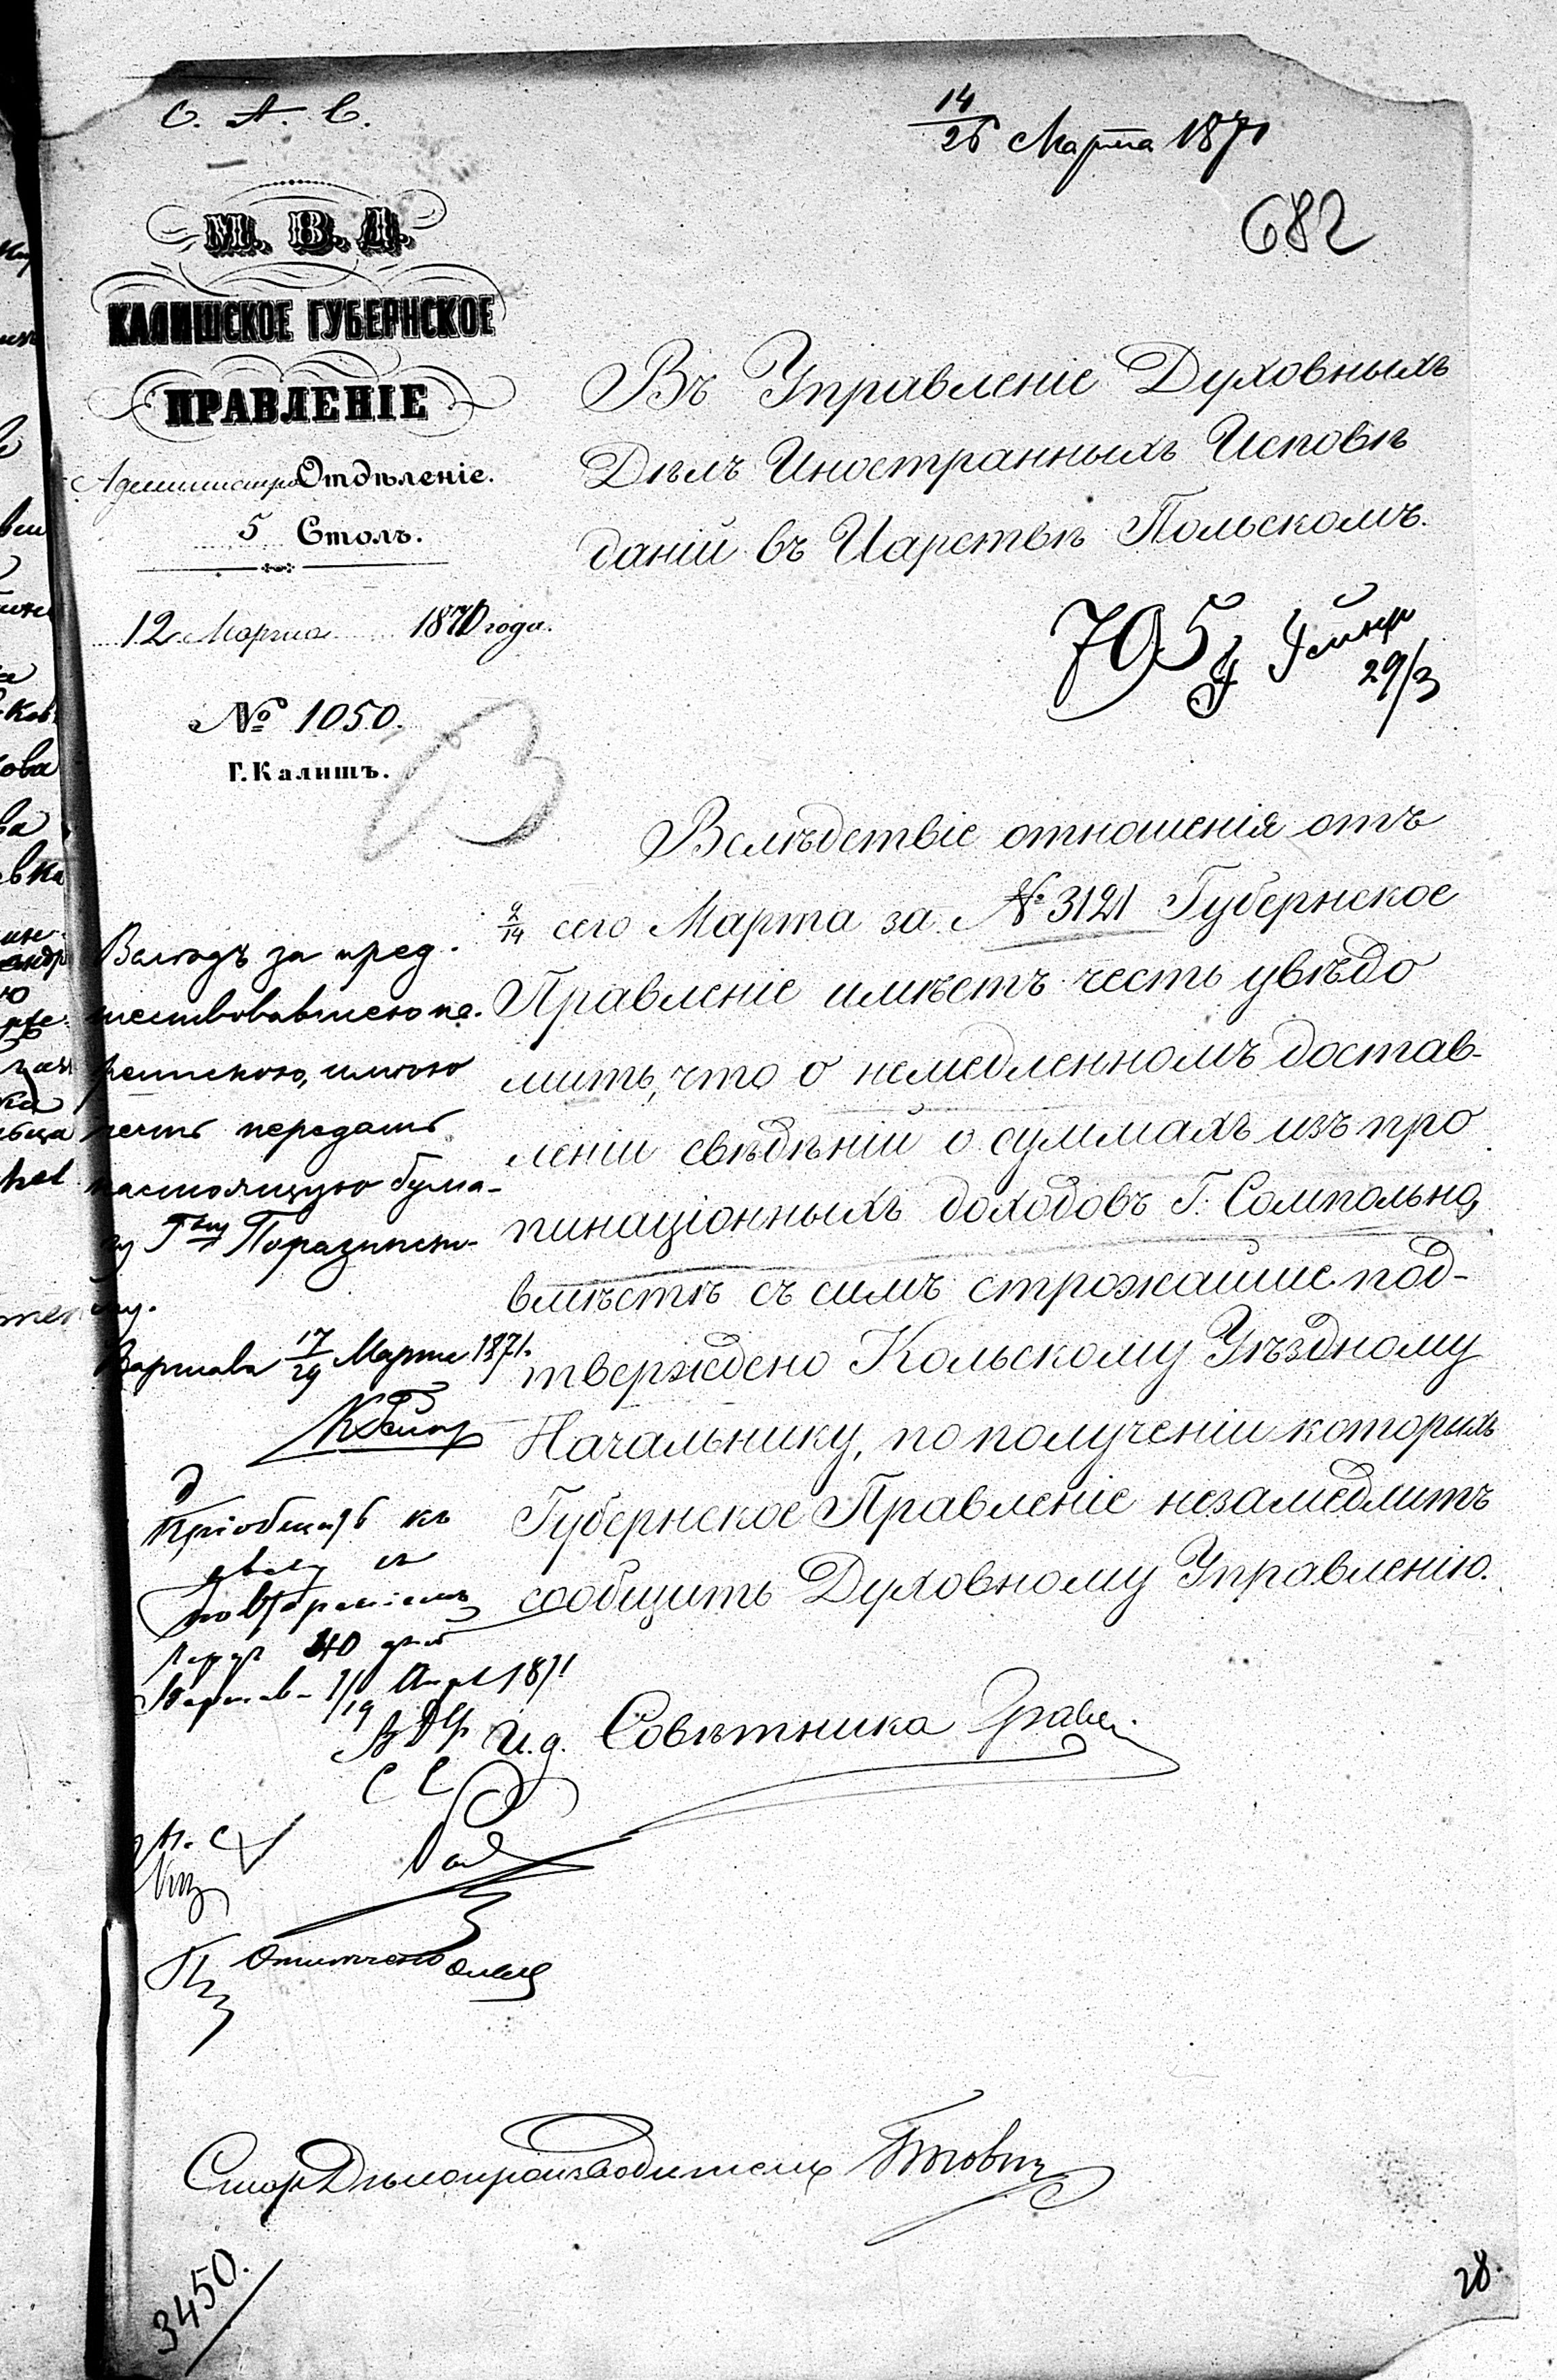 С. А. С.
14/26 Марта 1871
682
М. В. Д.
КАЛИШСКОЕ ГУБЕРНСКОЕ
ПРАВЛЕНІЕ
Отдѣленіе.
5 Столъ.
12 Марта 1871 года.
№ 1050.
Г. Калишъ.
Въ Управленіе Духовныхъ
Дѣлъ Иностранныхъ Исповѣ
даній въ Царствѣ Польскомъ.
795
29/3
Вслѣдствіе отношенія отъ
2/14 сего Марта за № 3121 Губернское
Правленіе имѣетъ честь увѣдо
мить, что о немедленномъ достав-
леніи свѣдѣній о суммахъ изъ про
пинаціонныхъ доходовъ Г. Сомпольно,
вмѣстѣ съ симъ строжайше под-
тверждено Кольскому Уѣздному
Начальнику, по полученіи которыхъ
Губернское Правленіе незамедлитъ
сообщить Духовному Управленію.
И. д. Совѣтника
Вслѣдъ за пред-
шествовавшею пе-
репискою, имѣю
честь передать
настоящую бума-
гу
Варшава 17/29 Марта 1871.
Пріобщить къ
дѣлу съ
повтореніемъ
чрезъ 40 дней
7/19 Апр 1871
Отмѣчено
Стар Дѣлопроизводитель
3450.
28.